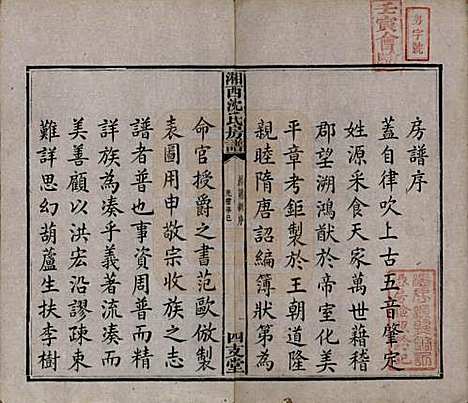 房譜序
蓋自律吹上古五音肇定
姓源采食天家萬世藉稽
郡望溯鴻猷於帝室化美
平章考鉅製於王朝道隆
親睦隋唐詔編簿狀第為
湘西沈氏房譜
四支堂
命官授爵之書范歐倣製
表圖用申敬宗收族之志
譜者普也事資周普而精
詳族為湊乎義著流湊而
美善顧以洪宏沿謬疎東
難詳思幻葫蘆生扶李樹